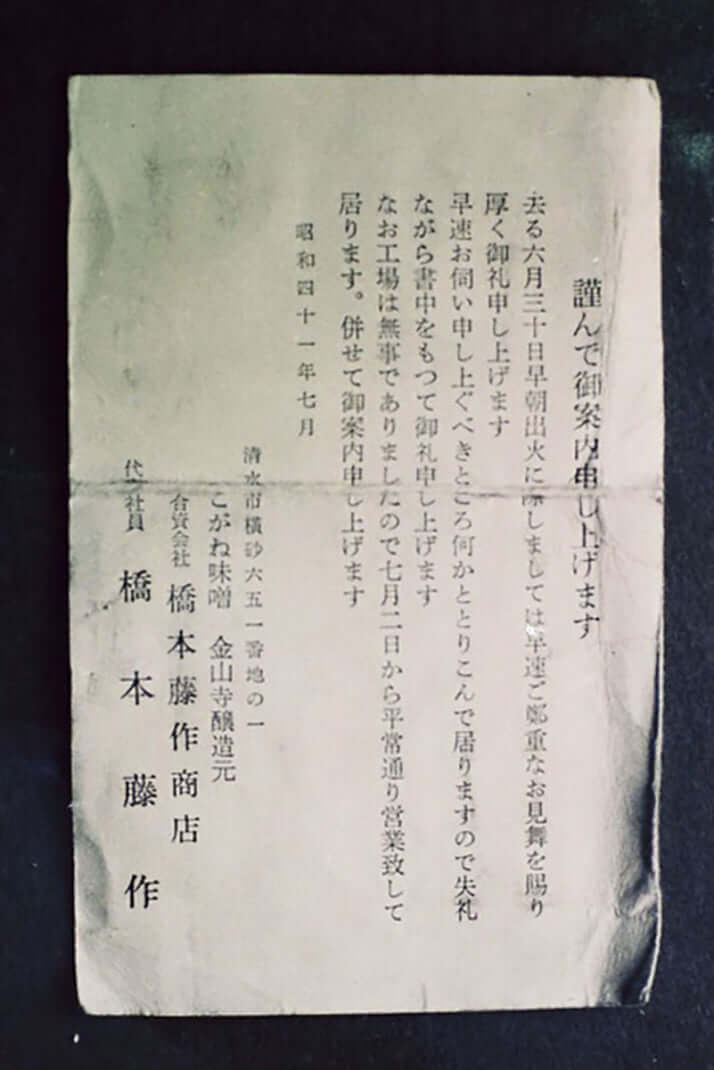 謹んで御案内申し上げます
去る六月三十日早朝出火に際しましては早速ご鄭重なお見舞を賜り
厚く御礼申し上げます
早速お伺い申し上ぐべきところ何かととりこんで居りますので失礼
ながら書中をもつて御礼申し上げます
なお工場は無事でありましたので七月二日から平常通り営業致して
居ります。併せて御案内申し上げます
昭和四十一年七月
清水市横砂六五一番地の一
こがね味噌 金山寺醸造元
合資会社 橋本藤作商店
代表社員 橋本藤作